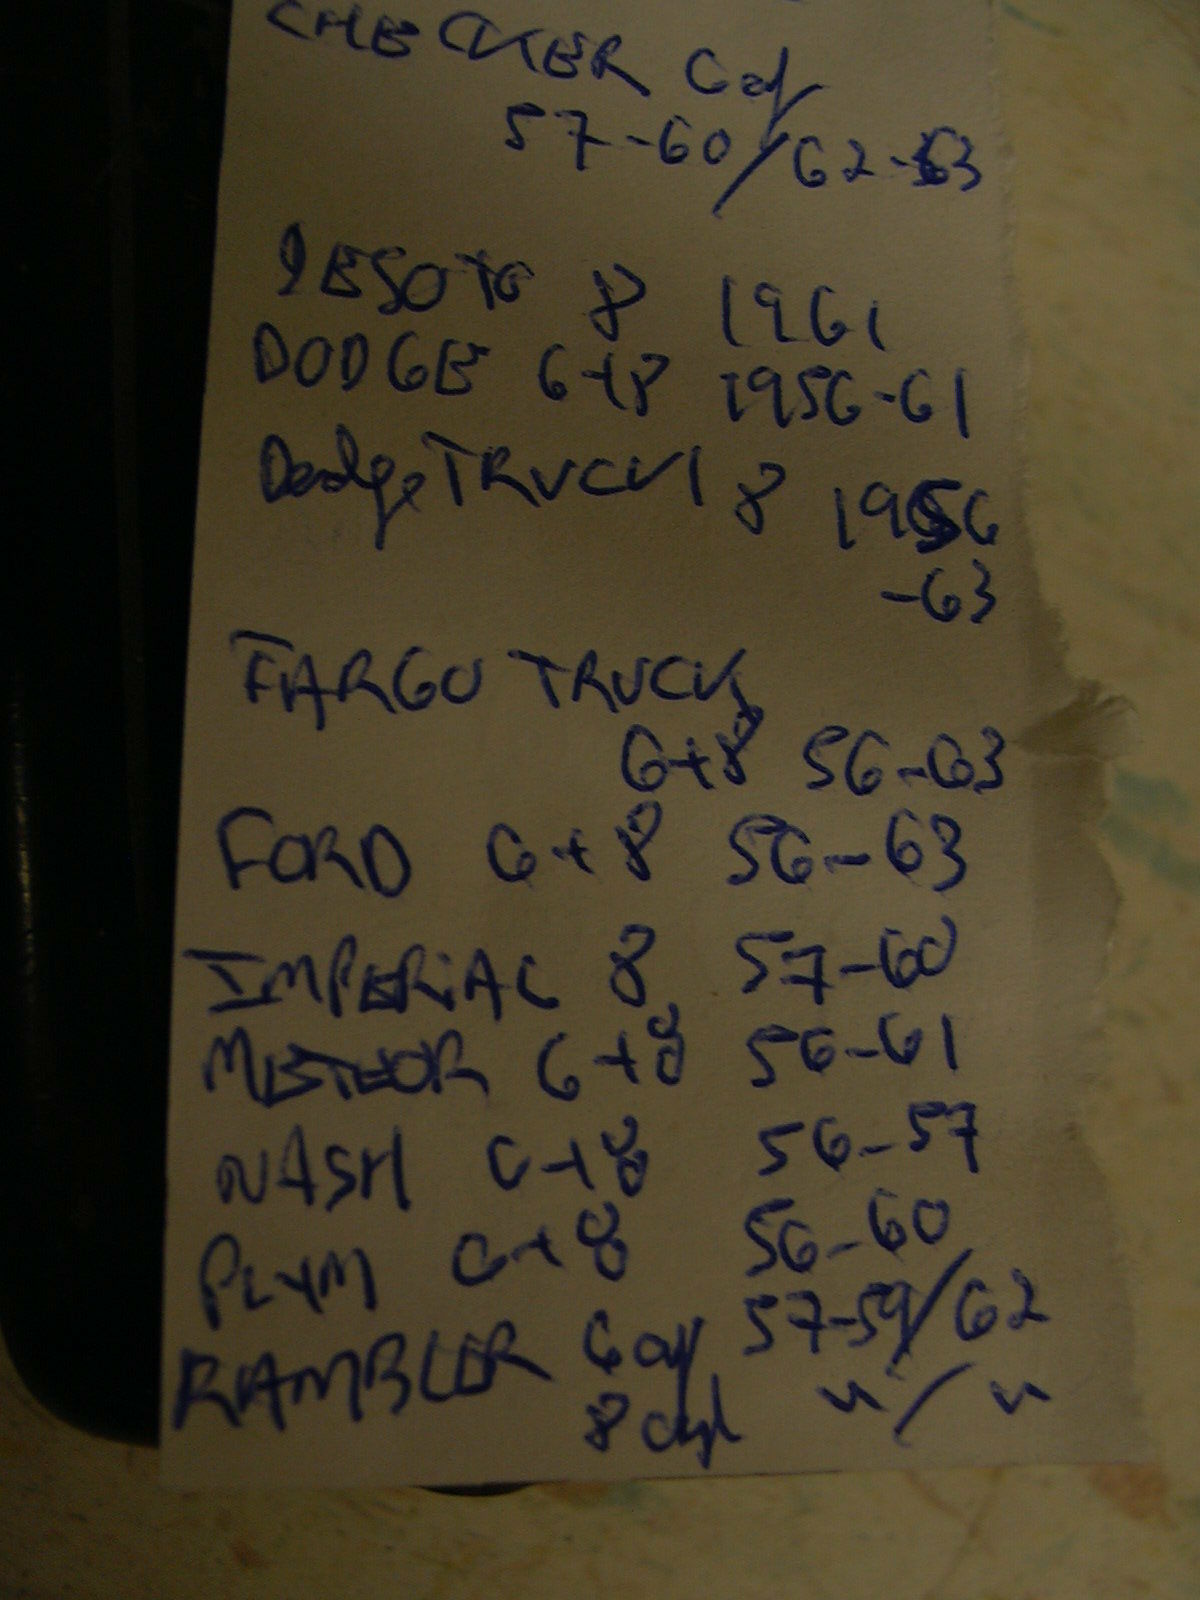 CHECKER 6 cyl
57-60/62-63
DESOTO 8 1961
DODGE 6+8 1956-61
Dodge TRUCK 8 1956
-63
FARGO TRUCK
6+8 56-63
FORD 6+8 56-63
IMPERIAL 8 57-60
METEOR 6+8 56-61
NASH 6+8 56-57
PLYM 6+8 56-60
RAMBLER 6 cyl 57-59/62
8 cyl " / "